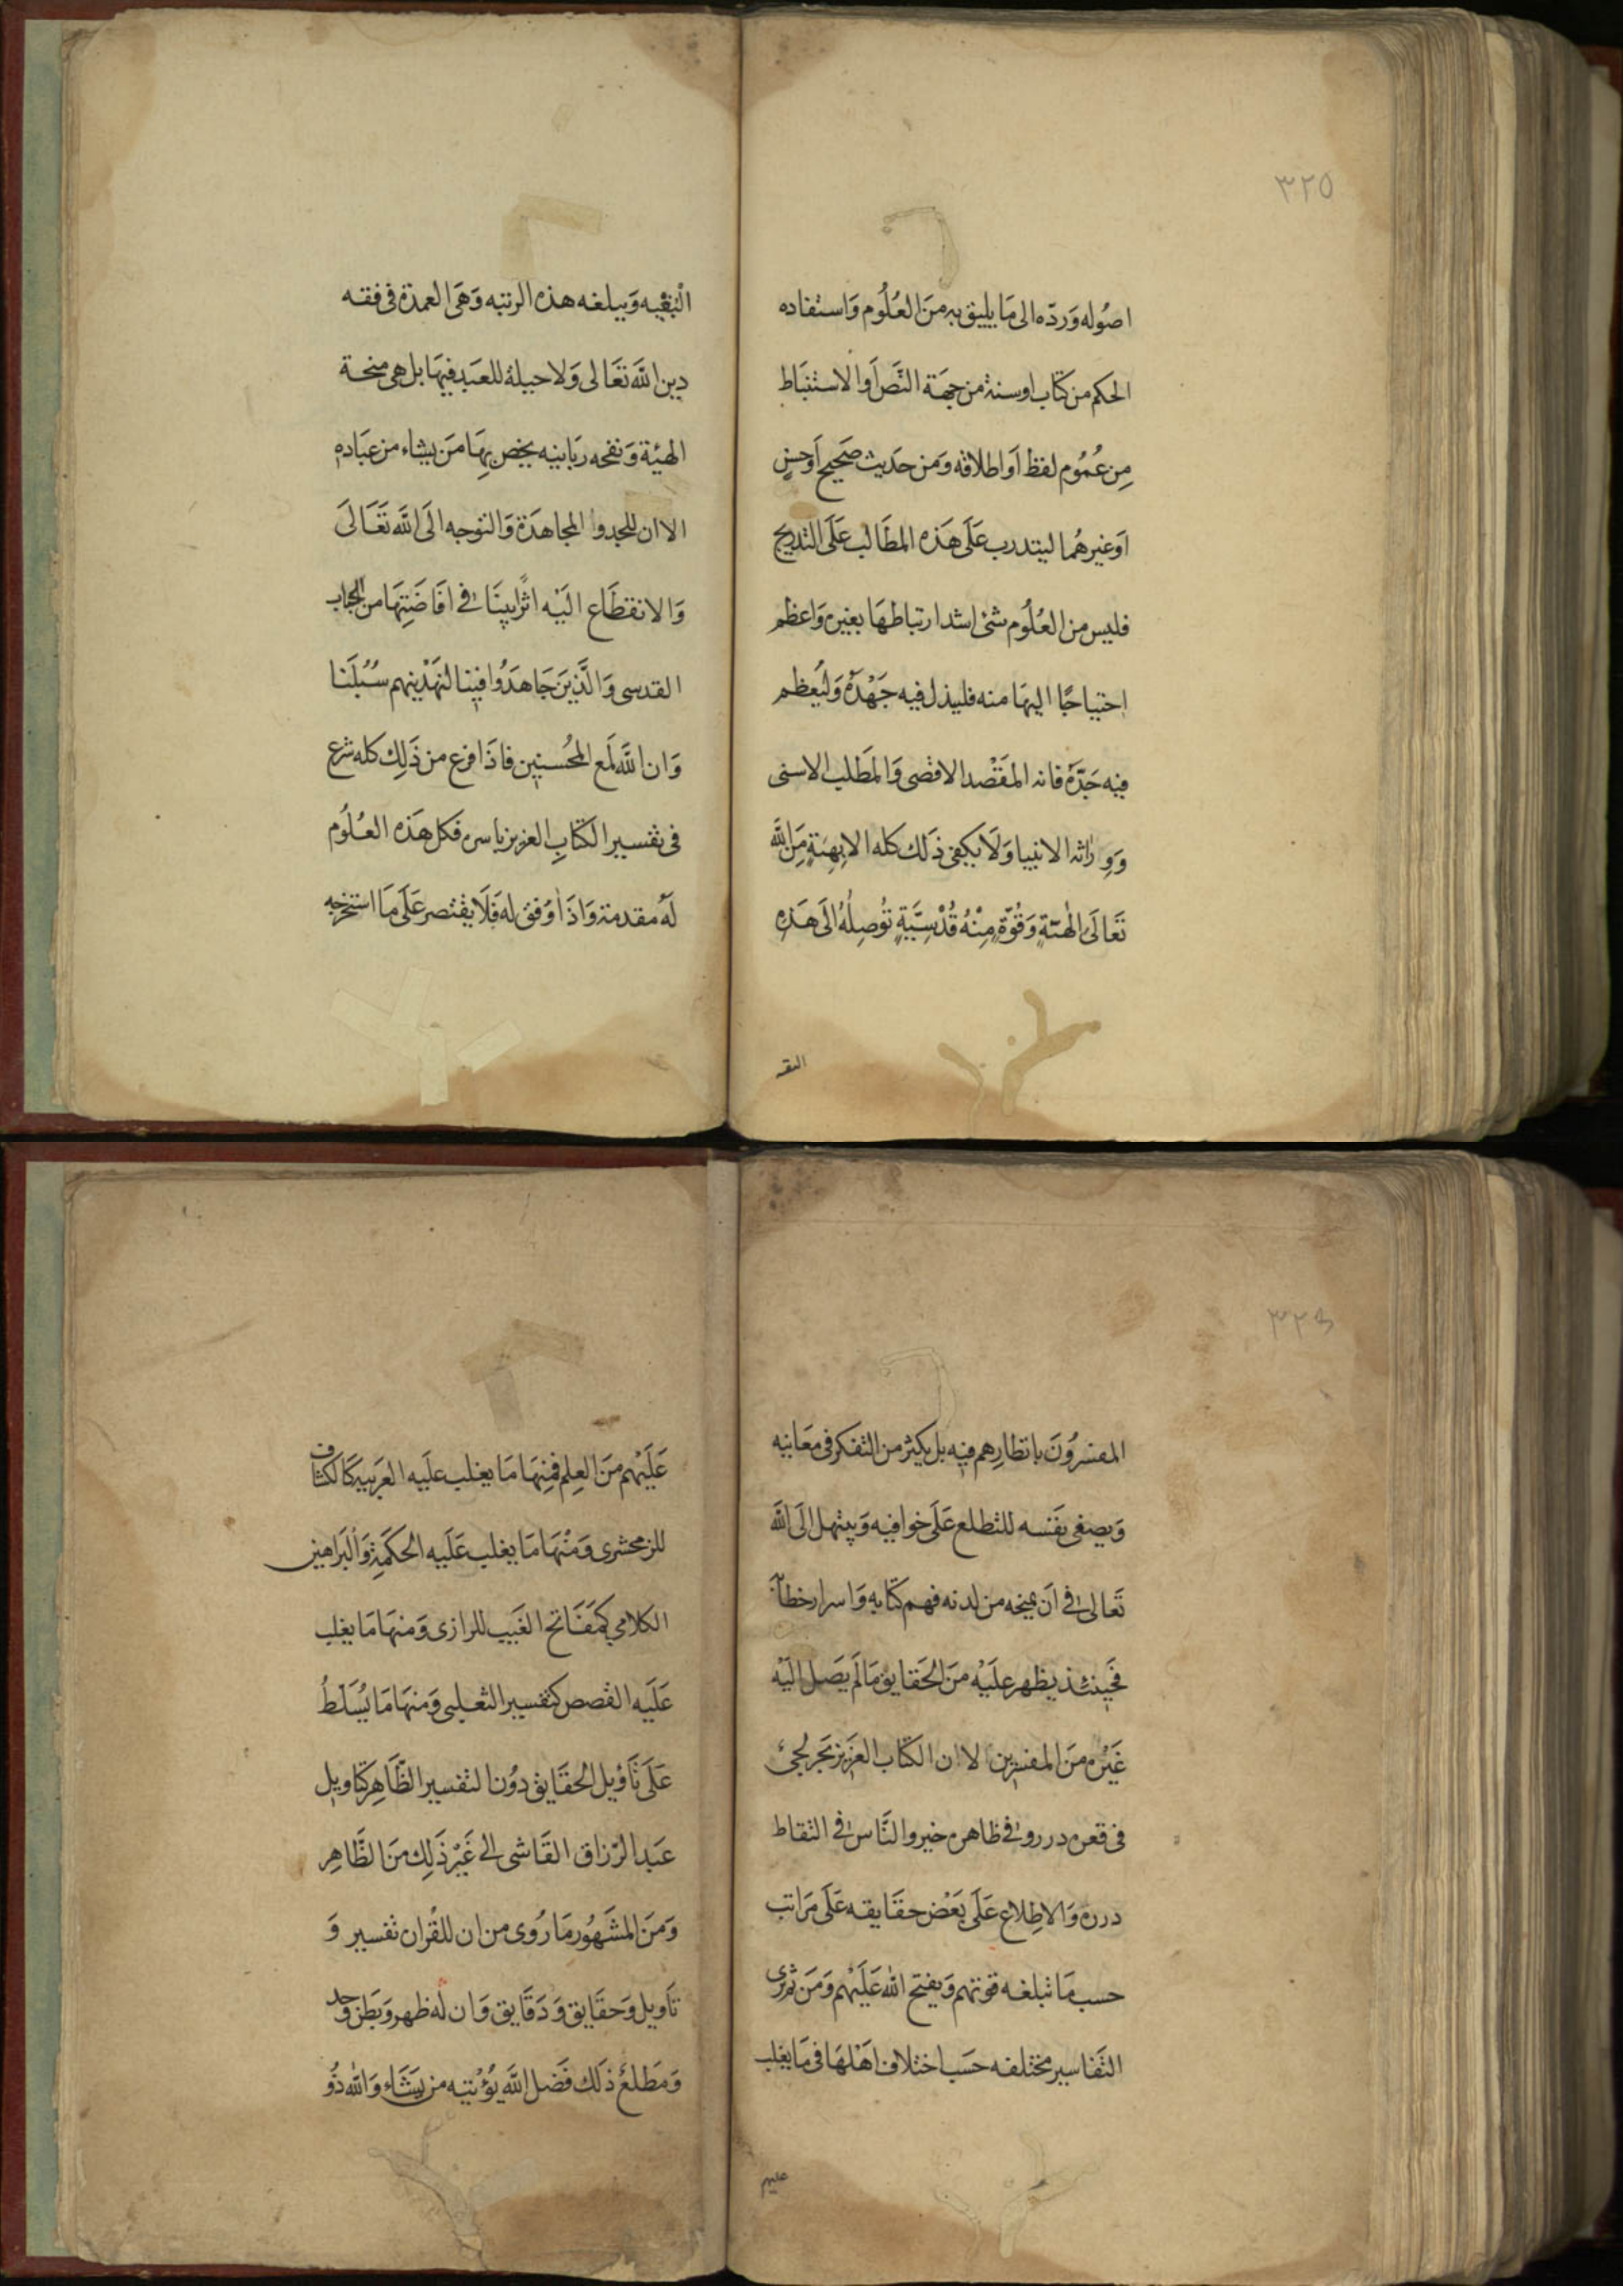 ٣٢٥
اصُوله وَردّه الى مَا يليق به منَ العُلُوم وَاستفاده
الحكم من كتاب اوسنة من جهَة النّصَ اَوالاستنبَاط
مِن عُمُوم لفظ اَواطلاقه وَمن حَديث صَحيح اَوحسنٍ
اوَغيرهُما ليتدرب عَلَى هَذه المطَالب عَلَى التدريج
فليس من العُلُوم شئ اشد ارتباطهَا بغيره وَاعظم
احتياجًا اليهَا منه فليبذل فيه جَهْدَهُ وَليُعظم
فيه جَدّهُ فانه المقَصْد الاقصى وَالمَطلب الاسنى
وَوِراثة الانبيا وَلَا يكفى ذَلك كله الا بِهبَةٍ مَِن الله
تَعَالَى الٰهيَّةٍ وَقُوّةٍ مِنْهُ قُدْسِيَّةٍ تُوصِلُهُ الَى هَذِهِ
البقعه
البُقعْيه وَيبلغه هذه الرتبه وَهَى العمدة فى فقه
دين الله تَعَالى وَلا حيلة للعبَد فيهَا بل هى منحة
الهيّة وَنفحه رَبانيه يخص بِهَا مَن يشاء من عبَاده
الا ان للجد وا المجاهدَة وَالتوجه الَى الله تَعَالَى
وَالانقطَاع اليْه اثرًا بينَا فى افَاضَتِهَا من الجناب
القدسى وَالَّذينَ جَاهدَوُا فيِنا لنهَدْينهم سُبُلَنا
وَان الله لَمع المحُسنين فاذَا فرغ من ذَلِك كله شرع
فى تفسير الكتابِ العزيز باسره فكل هَذه العُلُوم
لهُ مقدمة وَاذَا وُفق له فَلَا يقتصر عَلَى مَا استخرجه
٣٢٦
المفسرُونَ بانظارِهم فيه بل يكثر من التفكر فى معَانيه
وَيصغى بنفَسه للتطلع عَلَى خوافيه وَيبتهل الَى الله
تَعالى فى اَن يمنحه من لدنه فهم كتابه وَاسرار خطابه
فحَينئذ يظهر علَيْه منَ الحَقايق مَا لَم يصَل اليَْه
غَيْره منَ المفسرين لا ان الكتَاب العزَيز بَحر لجىّ
فى قعره درر وفى ظاهره خير والنَّاس فى التقاط
درره وَالاطِلاع عَلَى بَعْض حقَايقه عَلَى مَراتب
حسب مَا تبلغه قوتهم وَيفتح الله عَليَْهم وَمَن ثم ترى
التفَاسير مختلفه حسَب اختلاف اهَْلهَا فى مَا يغلب
عليهم
عَلَيْهم منَ العِلم فمِنهَا مَا يغلب علَيه العَربيه كَالكشاف
للزمخشرى وَمنْهَا مَا يغلب عَلَيه الحكمَة وَالْبَراهين
الكلامي كمَفَاتح الغَيب للرازى وَمنهَا مَا يغلب
عَلَيه القصص كتفسير الثعلبى وَمنهَا مَا يُسَلطُ
عَلَى تَأوْيل الحقَايق دوُن التفسير الظّاهِر كتاويل
عَبد الرّزاق القَاشى الى غَيْر ذَلِك منَ الظَّاهِر
وَمَن المشَهُور مَا رُوى من ان للقُران تفسير وَ
تَاويل وَحقَايق وَدَقَايق وَان لَه ظهر وَبَطن وَحد
وَمَطلعُ ذلَك فَضل الله يؤُتيه من يَشَاء وَالله ذُو